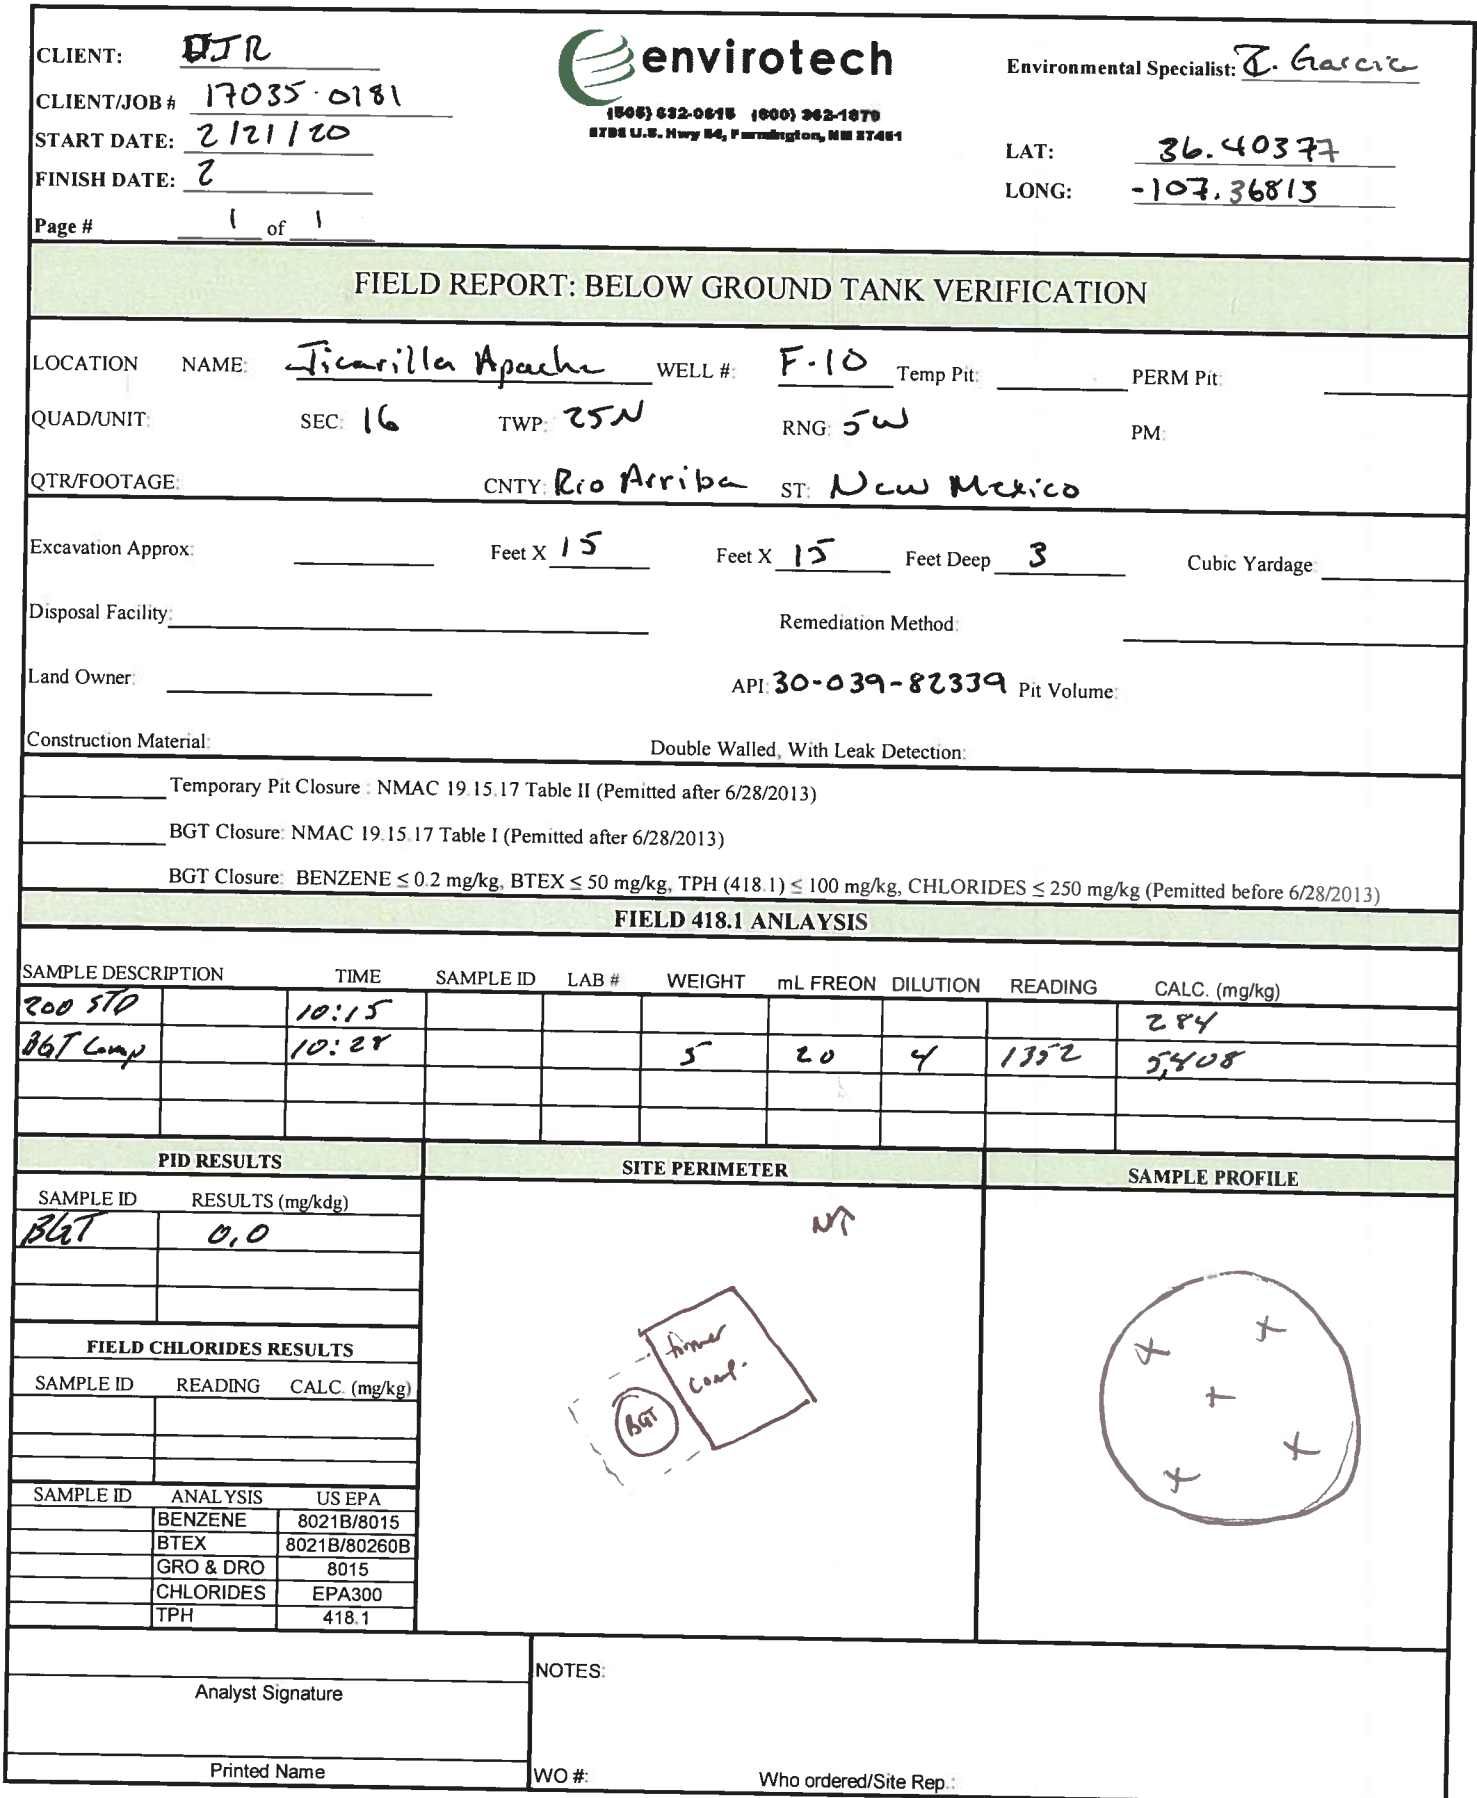 CLIENT: DJR
envirotech
Environmental Specialist: I. Garcia
CLIENT/JOB # 17035-0181
(505) 632-0615 (800) 362-1879
5796 U.S. Hwy 64, Farmington, NM 87401
START DATE: 2/21/20
LAT: 36.40377
FINISH DATE: 2
LONG: -107.36813
Page # 1 of 1
FIELD REPORT: BELOW GROUND TANK VERIFICATION
LOCATION NAME: Jicarilla Apache WELL #: F-10 Temp Pit: PERM Pit:
QUAD/UNIT: SEC: 16 TWP: 25N RNG: 5W PM:
QTR/FOOTAGE: CNTY: Rio Arriba ST: New Mexico
Excavation Approx: Feet X 15 Feet X 15 Feet Deep 3 Cubic Yardage:
Disposal Facility: Remediation Method:
Land Owner: API: 30-039-82339 Pit Volume:
Construction Material: Double Walled, With Leak Detection:
Temporary Pit Closure : NMAC 19.15.17 Table II (Pemitted after 6/28/2013)
BGT Closure: NMAC 19.15.17 Table I (Pemitted after 6/28/2013)
BGT Closure: BENZENE ≤ 0.2 mg/kg, BTEX ≤ 50 mg/kg, TPH (418.1) ≤ 100 mg/kg, CHLORIDES ≤ 250 mg/kg (Pemitted before 6/28/2013)
FIELD 418.1 ANLAYSIS
SAMPLE DESCRIPTION TIME SAMPLE ID LAB # WEIGHT mL FREON DILUTION READING CALC. (mg/kg)
200 STD 10:15 284
BGT Comp 10:28 5 20 4 1352 5,408
PID RESULTS
SAMPLE ID RESULTS (mg/kdg)
BGT 0.0
FIELD CHLORIDES RESULTS
SAMPLE ID READING CALC. (mg/kg)
SAMPLE ID ANALYSIS US EPA
BENZENE 8021B/8015
BTEX 8021B/80260B
GRO & DRO 8015
CHLORIDES EPA300
TPH 418.1
SITE PERIMETER
N
former
comp.
BGT
SAMPLE PROFILE
Analyst Signature
Printed Name
NOTES:
WO #: Who ordered/Site Rep.: